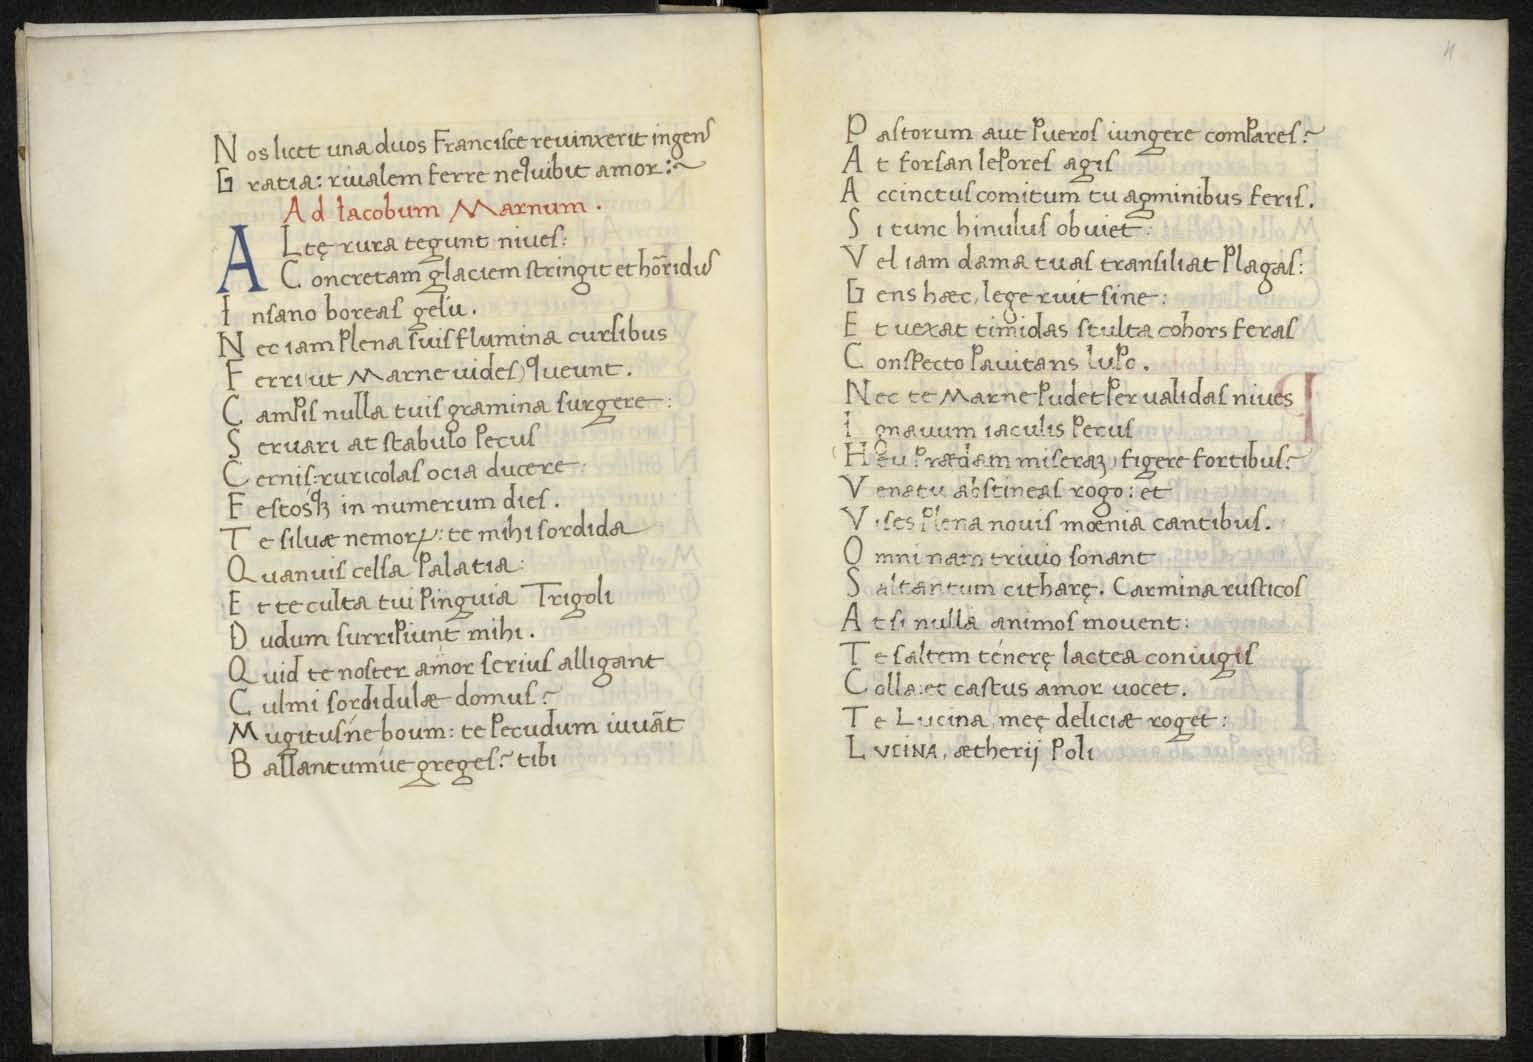 Nos licet una duos Francisce reuinxerit ingens
Gratia: riualem ferre nequibit amor:~
Ad Iacobum Marnum.
ALtę rura tegunt niues:
Concretam glaciem stringit et hōrridus
Insano boreas gelu.
Nec iam plena suis flumina cursibus
Ferri (ut Marne uides) queunt.
Campis nulla tuis gramina surgere:
Seruari at stabulo pecus
Cernis: ruricolas ocia ducere:
Festosqꝫ in numerum dies.
Te siluæ nemorꝝ: te mihi sordida
Quanuis celsa palatia:
Et te culta tui pinguia Trigoli
Dudum surripiunt mihi.
Quid te noster amor serius alligant
Culmi sordidulæ domus?
Mugitusne boum: te pecudum iuuāt
Ballantumúe greges? tibi
4
Pastorum aut pueros iungere compares?
At forsan lepores agis
Accinctus comitum tu agminibus feris.
Si tunc hinulus obuiet:
Vel iam dama tuas transiliat plagas:
Gens hæc, lege ruit sine:
Et uexat timidas stulta cohors feras
Conspecto pauitans lupo.
Nec te Marne pudet per ualidas niues
Ignauum iaculis pecus
(Heu prædam miseraꝫ) figere fortibus?
Venatu abstineas rogo: et
Vises plena nouis mœnia cantibus.
Omni nam triuio sonant
Saltantum citharę. Carmina rusticos
At si nulla animos mouent:
Te saltem ténerę lactea coniugis
Colla: et castus amor uocet.
Te Lucina meę deliciæ roget:
LVCINA, ætherij poli